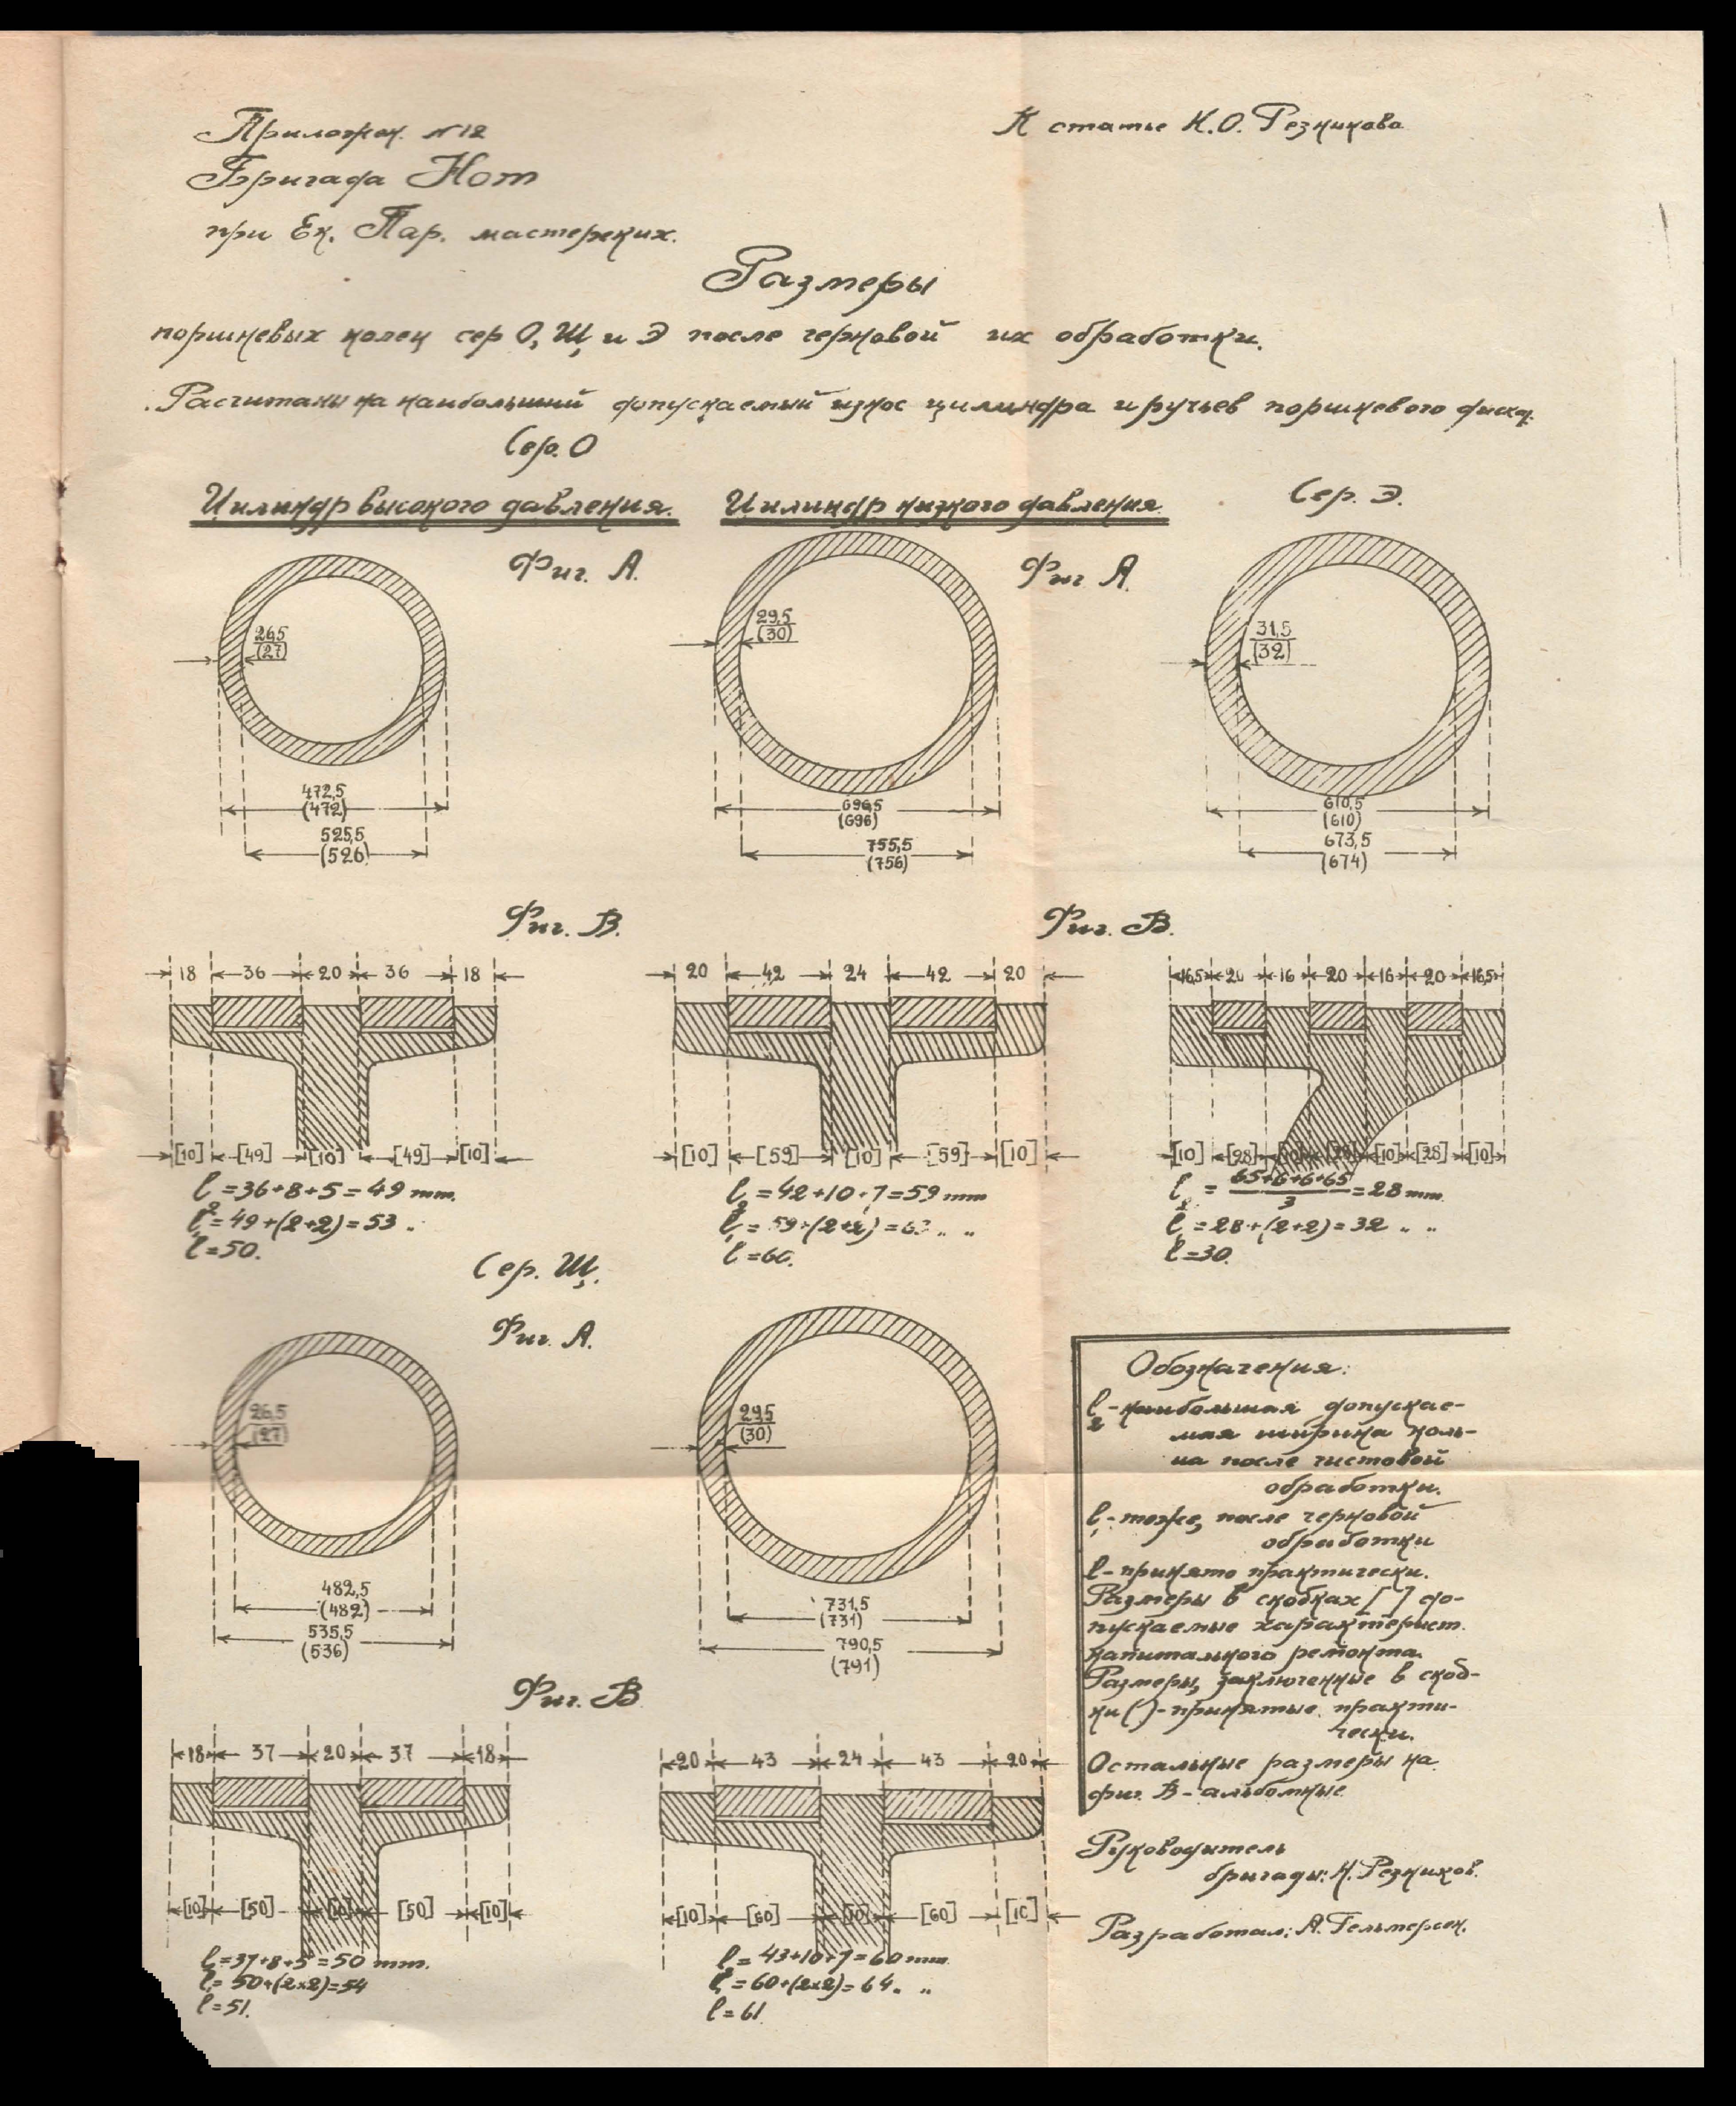 Прилож. №12
К статье Н.О. Резникова
Бригада Нот
при Ек. Пар. мастерских.
Размеры
поршневых колец сер О, Щ и Э после черновой их обработки.
Расчитаны на наибольший допускаемый износ цилиндра и ручьев поршневого диска.
Сер. О
Цилиндр высокого давления. Цилиндр низкого давления
Сер. Э.
Фиг. А. Фиг А.
26,5 29,5 31,5
(27) (30) (32)
472,5 696,5 610,5
(472) (696) (610)
525,5 755,5 673,5
(526) (756) (674)
Фиг. В. Фиг. В.
18 36 20 36 18 20 42 24 42 20 16,5 20 16 20 16 20 16,5
[10] [49] [10] [49] [10] [10] [59] [10] [59] [10] [10] [28] [10] [28] [10] [28] [10]
l₂=36+8+5=49 mm.
l₁=49+(2+2)=53 „
l=50.
l₂=42+10+7=59 mm
l₁=59+(2+2)=63 „ „
l=60.
l₂=65+6+6+65/3=28 mm.
l₁=28+(2+2)=32 „ „
l=30.
Сер. Щ.
Фиг. А.
26,5 29,5
(27) (30)
482,5 731,5
(482) (731)
535,5 790,5
(536) (791)
Фиг. В
18 37 20 37 18 20 43 24 43 20
[10] [50] [10] [50] [10] [10] [60] [10] [60] [10]
l₂=37+8+5=50 mm.
l₁=50+(2×2)=54
l=51.
l₂=43+10+7=60 mm
l₁=60+(2×2)=64. „
l=61
Обозначения:
l₂-наибольшая допускае-
мая ширина коль-
ца после чистовой
обработки.
l₁-тоже, после черновой
обработки
l-принято практически.
Размеры в скобках [ ] до-
пускаемые характерист.
капитального ремонта.
Размеры, заключенные в скоб-
ки ( )-принятые практи-
чески.
Остальные размеры на
фиг. В-альбомные
Руководитель
бригады: Н. Резников.
Разработал: А. Гельмерсен.